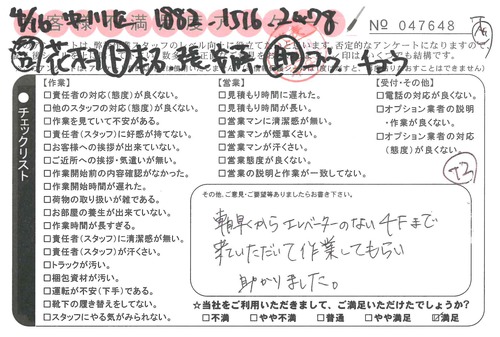 No 047648
チェックリスト
【作業】
□責任者の対応(態度)が良くない。
□他のスタッフの対応(態度)が良くない。
□作業を見ていて不安がある。
□責任者(スタッフ)に好感が持てない。
□お客様への挨拶が出来ていない。
□ご近所への挨拶・気遣いが無い。
□作業開始前の内容確認がなかった。
□作業開始時間が遅れた。
□荷物の取り扱いが雑である。
□お部屋の養生が出来ていない。
□作業時間が長すぎる。
□責任者(スタッフ)に清潔感が無い。
□責任者(スタッフ)が汗くさい。
□トラックが汚い。
□梱包資材が汚い。
□運転が不安(下手)である。
□靴下の履き替えをしてない。
□スタッフにやる気がみられない。
【営業】
□見積もり時間に遅れた。
□見積もり時間が長い。
□営業マンに清潔感が無い。
□営業マンが煙草くさい。
□営業マンが汗くさい。
□営業態度が良くない。
□営業の説明と作業が一致してない。
【受付・その他】
□電話の対応が良くない。
□オプション業者の説明
・作業が良くない。
□オプション業者の対応
(態度)が良くない。
その他、ご意見・ご要望等ありましたらお書き下さい。
朝早くからエレベーターのない4Fまで
来ていただいて作業してもらい
助かりました。
☆当社をご利用いただきまして、ご満足いただけたでしょうか?
□不満 □やや不満 □普通 □やや満足 ☑満足